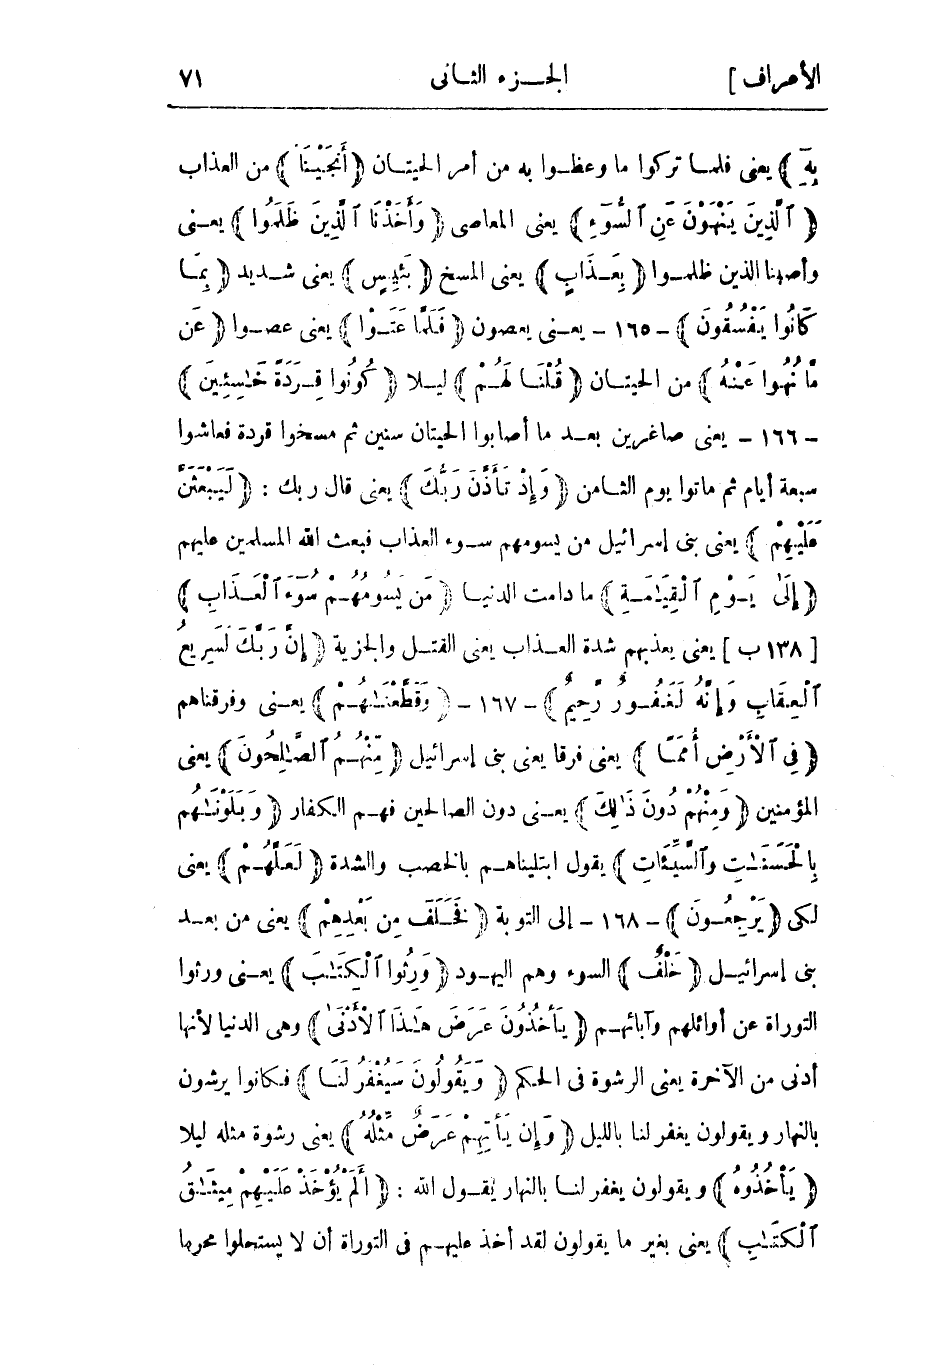 الأعراف ] الجـــزء الثـانى ٧١
بِهِۦٓ ﴾ يعنى فلمـا تركوا ما وعظـوا به من أمر الحيتـان ﴿ أَنجَيْنَا ﴾ من العذاب
﴿ ٱلَّذِينَ يَنْهَوْنَ عَنِ ٱلسُّوٓءِ ﴾ يعنى المعاصى ﴿ وَأَخَذْنَا ٱلَّذِينَ ظَلَمُوا ﴾ يعـنى
وأصبنا الذين ظلمـوا ﴿ بِعَـذَابٍ ﴾ يعنى المسخ ﴿ بَئِيسٍ ﴾ يعنى شـديد ﴿ بِمَـا
كَانُوا يَفْسُقُونَ ﴾ - ١٦٥ - يعـنى يعصون ﴿ فَلَمَّا عَتَـوْا ﴾ يعنى عصـوا ﴿ عَن
مَّا نُهُوا عَنْهُ ﴾ من الحيتـان ﴿ قُلْنَـا لَهُـمْ ﴾ ليـلا ﴿ كُونُوا قِـرَدَةً خَٰسِئِينَ ﴾
- ١٦٦ - يعنى صاغرين بعـد ما أصابوا الحيتان سنين ثم مسخوا قردة فعاشوا
سبعة أيام ثم ماتوا يوم الثـامن ﴿ وَإِذْ تَأَذَّنَ رَبُّكَ ﴾ يعنى قال ربك : ﴿ لَيَبْعَثَنَّ
عَلَيْهِمْ ﴾ يعنى بنى إسرائيل من يسومهم سـوء العذاب فبعث الله المسلمين عليهم
﴿ إِلَىٰ يَـوْمِ ٱلْقِيَـٰمَـةِ ﴾ ما دامت الدنيـا ﴿ مَن يَسُومُهُـمْ سُوٓءَ ٱلْعَـذَابِ ﴾
[ ١٣٨ ب ] يعنى يعذبهم شدة العـذاب يعنى القتـل والجزية ﴿ إِنَّ رَبَّكَ لَسَرِيعُ
ٱلْعِقَابِ وَإِنَّهُ لَغَفُـورٌ رَّحِيمٌ ﴾ - ١٦٧ - ﴿ وَقَطَّعْنَـٰهُـمْ ﴾ يعـنى وفرقناهم
﴿ فِى ٱلْأَرْضِ أُمَمًـا ﴾ يعنى فرقا يعنى بنى إسرائيل ﴿ مِّنْهُـمُ ٱلصَّـٰلِحُونَ ﴾ يعنى
المؤمنين ﴿ وَمِنْهُمْ دُونَ ذَٰلِكَ ﴾ يعـنى دون الصالحين فهـم الكفار ﴿ وَبَلَوْنَـٰهُم
بِالْحَسَنَـٰتِ وَٱلسَّيِّئَاتِ ﴾ يقول ابتليناهـم بالخصب والشدة ﴿ لَعَلَّهُـمْ ﴾ يعنى
لكى ﴿ يَرْجِعُـونَ ﴾ - ١٦٨ - إلى التوبة ﴿ فَخَـلَفَ مِن بَعْدِهِمْ ﴾ يعنى من بعـد
بنى إسرائيـل ﴿ خَلْفٌ ﴾ السوء وهم اليهـود ﴿ وَرِثُوا ٱلْكِتَـٰبَ ﴾ يعـنى ورثوا
التوراة عن أوائلهم وآبائهـم ﴿ يَأْخُذُونَ عَرَضَ هَـٰذَا ٱلْأَدْنَىٰ ﴾ وهى الدنيا لأنها
أدنى من الآخرة يعنى الرشوة فى الحكم ﴿ وَيَقُولُونَ سَيُغْفَرُ لَنَـا ﴾ فكانوا يرشون
بالنهار ويقولون يغفر لنا بالليل ﴿ وَإِن يَأْتِهِمْ عَرَضٌ مِّثْلُهُ ﴾ يعنى رشوة مثله ليلا
﴿ يَأْخُذُوهُ ﴾ ويقولون يغفر لنـا بالنهار يقـول الله : ﴿ أَلَمْ يُؤْخَذْ عَلَيْهِمْ مِيثَـٰقُ
ٱلْكِتَـٰبِ ﴾ يعنى بغير ما يقولون لقد أخذ عليهـم فى التوراة أن لا يستحلوا محرما